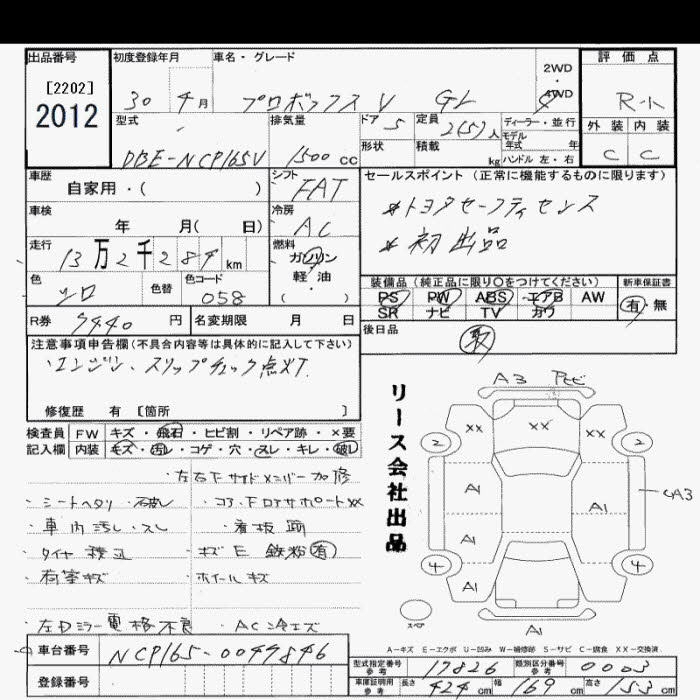 出品番号
[2202]
2012
初度登録年月
30 年 4 月
車名・グレード
プロボックス V GL
2WD
・
4WD
5
評価点
R-1
外装 内装
C C
型式
DBE-NCP165V
排気量
1500 cc
ドア 5
形状
定員
2(5)人
積載 kg
ディーラー・並行
モデル年式 年
ハンドル 左・右
車歴
自家用・( )
シフト
FAT
車検
年 月( 日)
冷房
AC
走行
13 万 2 千 2 8 9 km
燃料
ガソリン
軽・油
( ・ )
色
シロ
色替
色コード
058
R券 9440 円
名変期限 月 日
セールスポイント(正常に機能するものに限ります)
*トヨタセーフティセンス
*初出品
装備品(純正品に限り○をつけてください)
PS PW ABS エアB AW
SR ナビ TV カワ
新車保証書
有・無
後日品
取
注意事項申告欄(不具合内容等は具体的に記入して下さい)
・エンジン・スリップチェック点灯.
修復歴 有 [箇所 ]
検査員記入欄
FW キズ・飛石・ヒビ割・リペア跡・×要
内装 キズ・汚レ・コゲ・穴・スレ・キレ・破レ
・左右Fサイドメンバー 加修
・シートヘタリ・破レ
・コア、Fロアサポート××
・車内汚レ・スレ
・看板跡
・タイヤ
・キズE 鉄粉 有
・荷室キズ
・ホイールキズ
・左Dミラー電格不良
・AC冷エズ
リース会社出品
A3
××
××
××
2
2
A1
A1
A3
A1
4
4
A1
A1
スペア
A-キズ E-エクボ U-凹み W-補修跡 S-サビ C-腐食 XX-交換済
車台番号 NCP165-0049846
登録番号
型式指定番号 参考 17826
類別区分番号 参考 0003
車庫証明用 参考 長さ 424 cm 幅 169 cm 高さ 153 cm